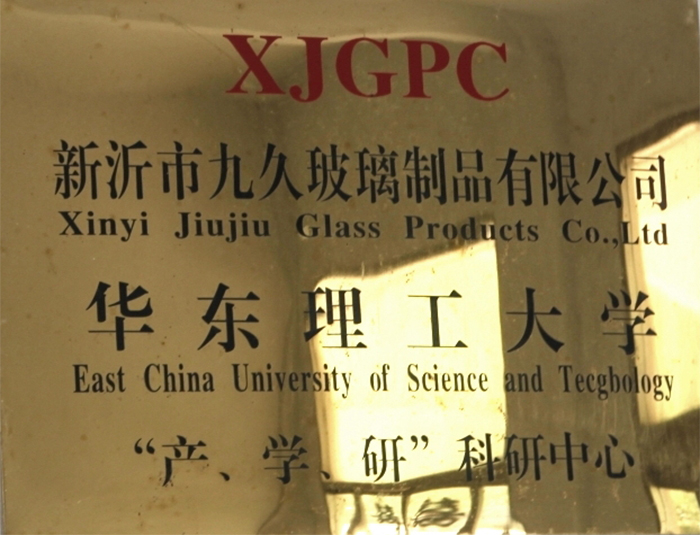 XJGPC
新沂市九久玻璃制品有限公司
Xinyi Jiujiu Glass Products Co.,Ltd
华东理工大学
East China University of Science and Tecgbology
“产、学、研”科研中心